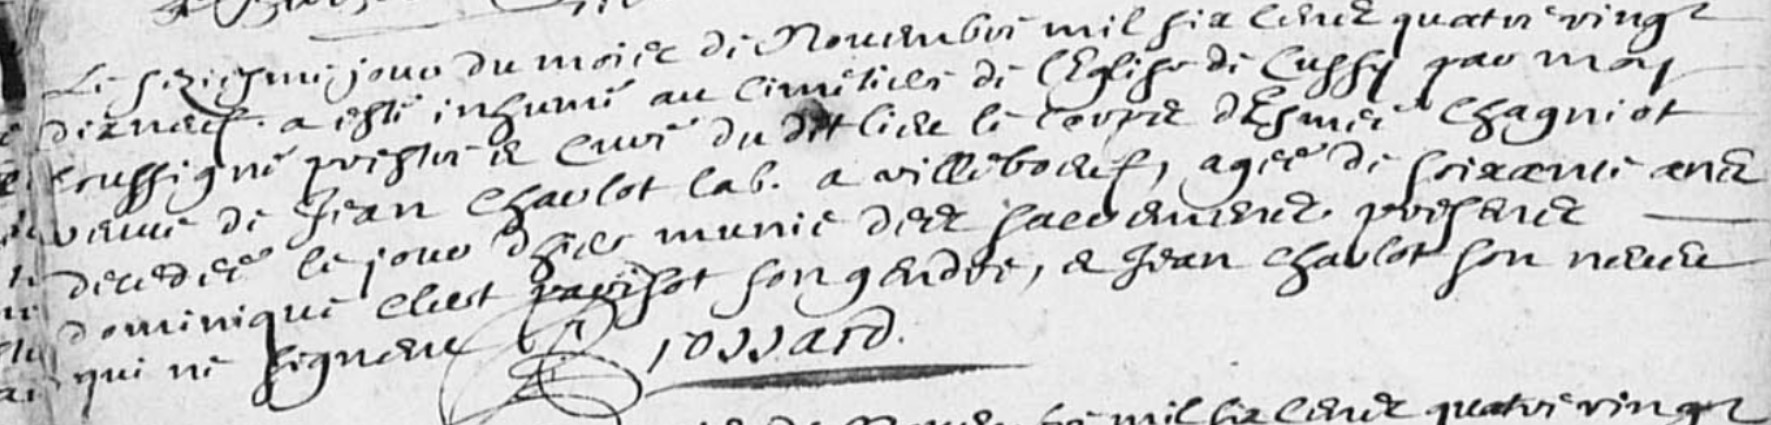 Le seziesme jour du mois de Novembre mil six cents quatre vingt
dixneuf a esté inhumé au cimetiere de l'Eglise de Cussy par moy
soussigné prestre et curé du dit lieu le corps d'Esmée Chagniot
vefve de Jean Charlot lab. a villeboeuf, agée de soixante ans
decedée le jour d'hier munie des sacrements. presents
dominique pavisot son gendre, et Jean Charlot son neveu
qui ne signent
mil six cents quatre vingt